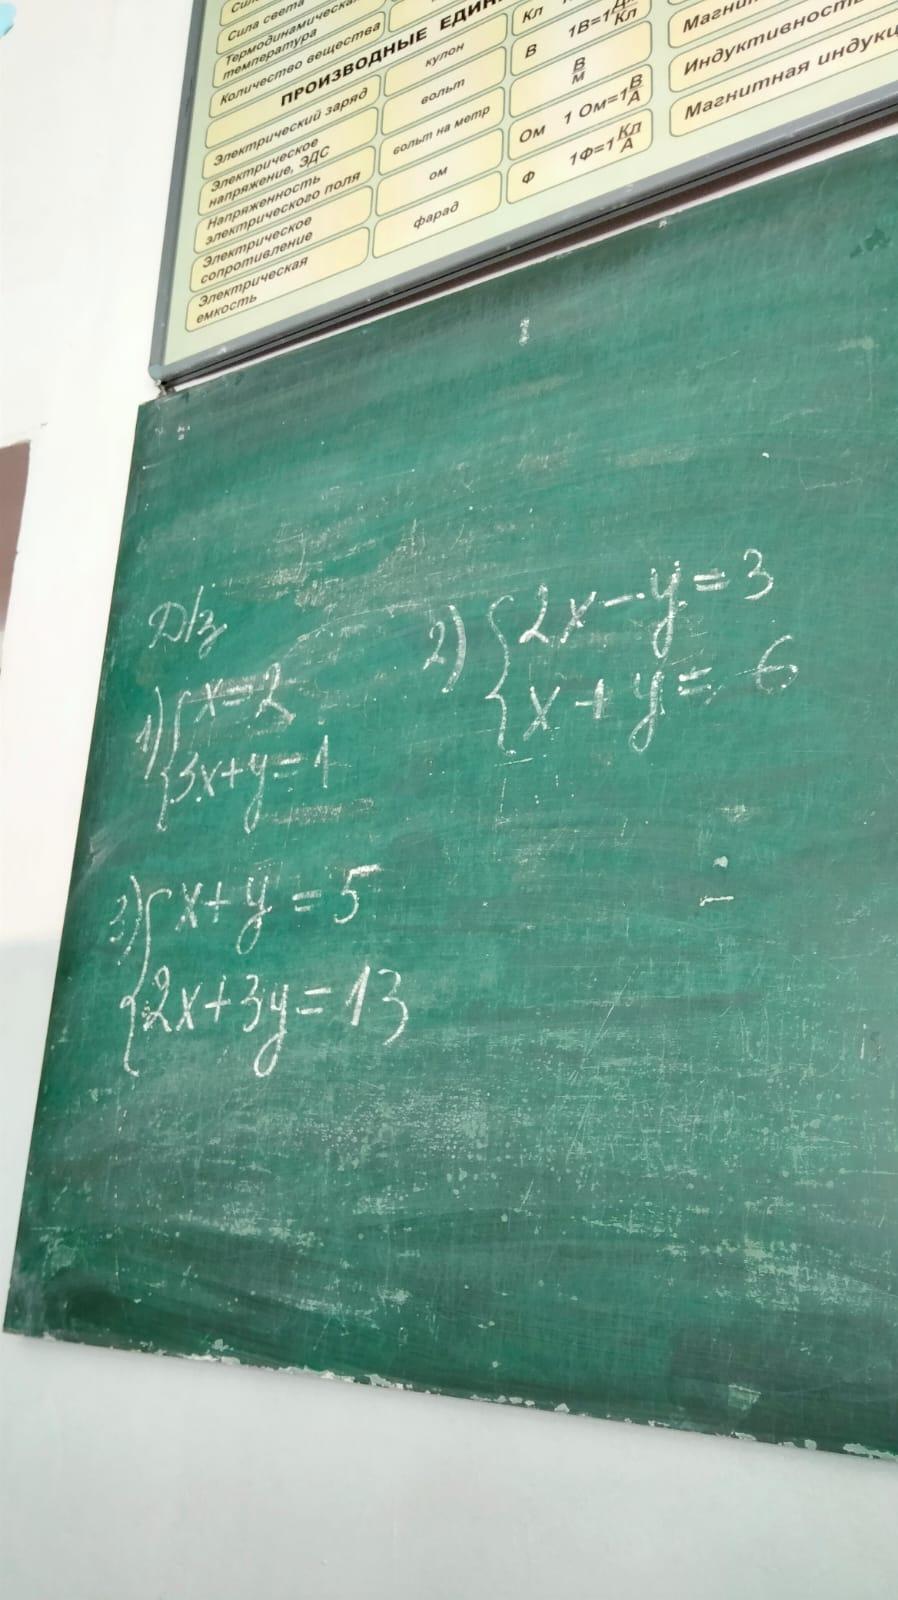 Сила света
Термодинамическая
температура
Количество вещества
ПРОИЗВОДНЫЕ
Электрический заряд
кулон
Кл
Электрическое
напряжение, ЭДС
вольт
В
Напряженность
электрического поля
вольт на метр
В
м
Электрическое
сопротивление
ом
Ом 1 Ом=1 В
А
Электрическая
емкость
фарад
Ф 1Ф=1 Кл
А
Д/з
1) { x=2
3x+y=1
2) { 2x-y=3
x+y=6
3) { x+y=5
2x+3y=13